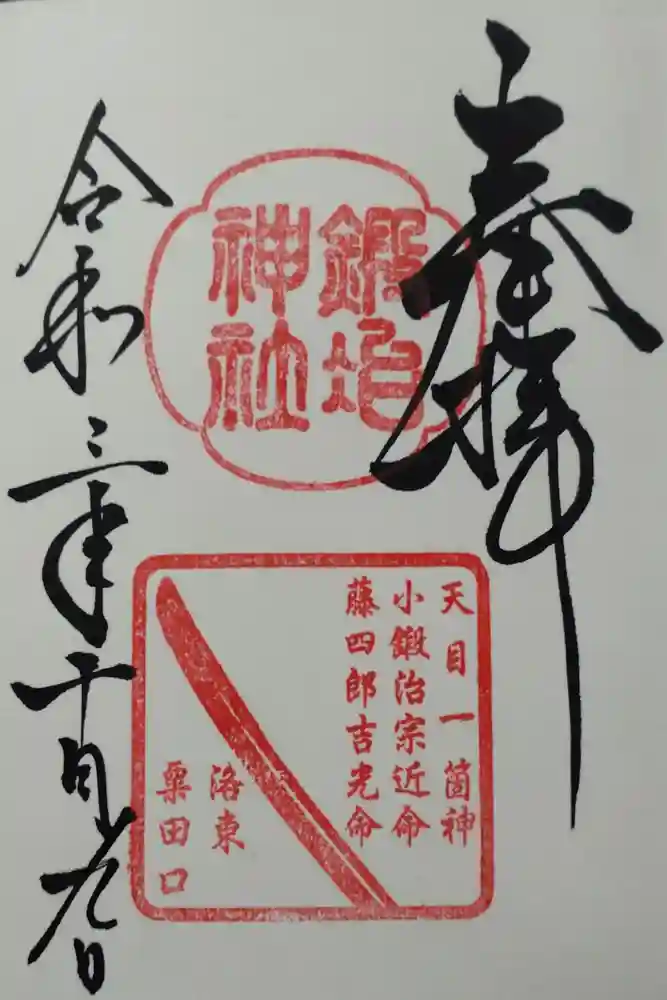 奉拝
鍛冶
神社
天目一箇神
小鍛治宗近命
藤四郎吉光命
洛東
粟田口
令和三年十月九日